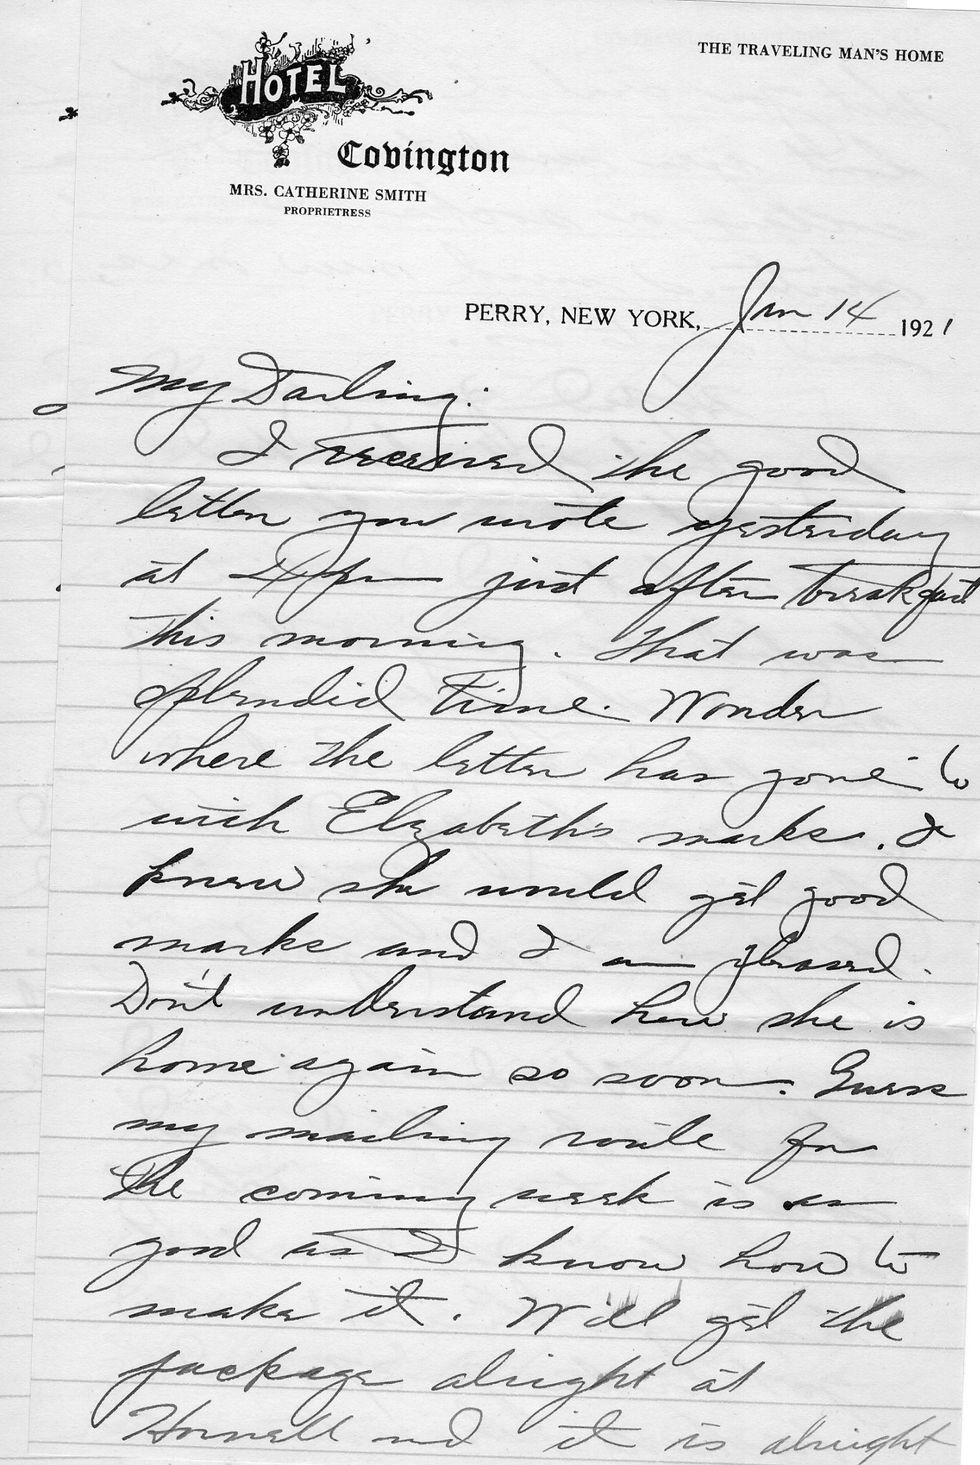 THE TRAVELING MAN'S HOME
HOTEL
Covington
MRS. CATHERINE SMITH
PROPRIETRESS
PERRY, NEW YORK, Jan 14 1921
My Darling:
I received the good
letter you wrote yesterday
at 4 pm just after breakfast
this morning. That was
splendid time. Wonder
where the letter has gone to
with Elizabeth's marks. I
knew she would get good
marks and I am pleased.
Don't understand how she is
home again so soon. Guess
my mailing route for
the coming week is as
good as I know how to
make it. Will get the
package alright at
Hornell and it is alright